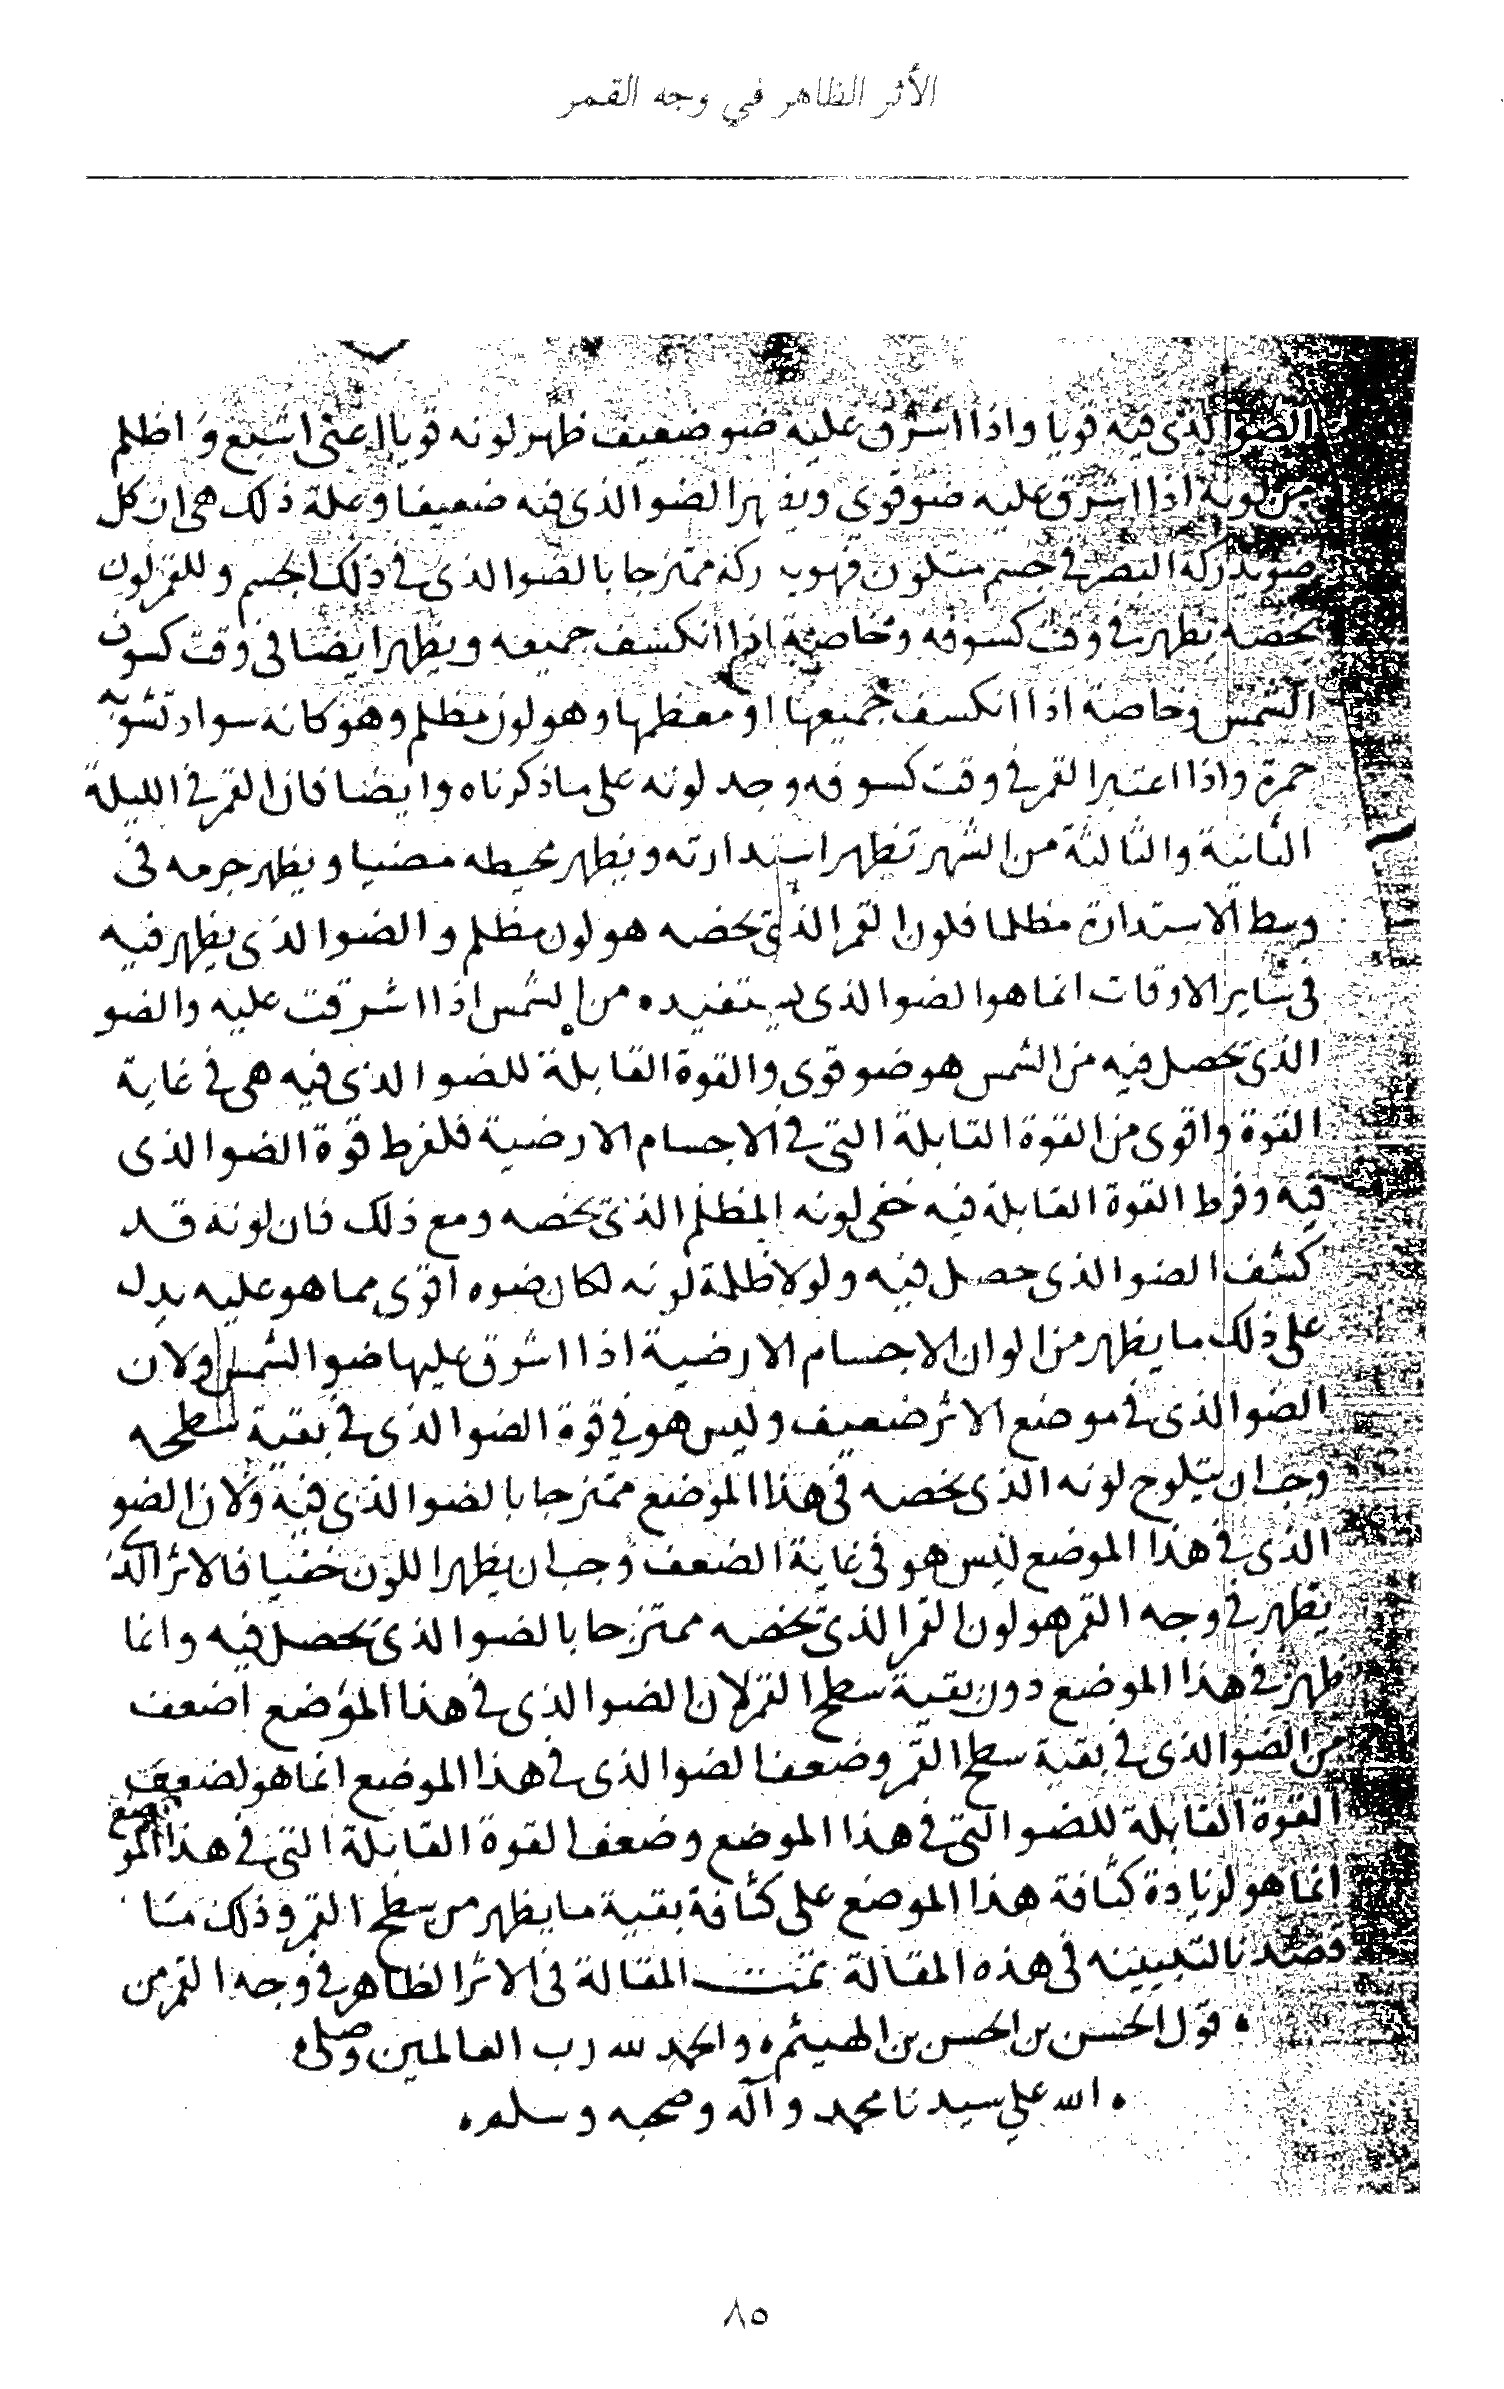 الأثر الظاهر في وجه القمر
الضوا الذى فيه قويا واذا اشرق عليه ضو ضعيف ظهر لونه قويا اعنى اشبع و اظلم
من لونه اذا اشرق عليه ضو قوى ويظهر الضوا الذى فيه ضعيفا وعلة ذلك هى ان كل
ضو يدركه البصر فى جسم متلون فهو يدركه ممتزجا بالضوا الذى فى ذلك الجسم وللقمر لون
يخصه يظهر فى وقت كسوفه وخاصة اذا انكسف جميعه ويظهر ايضا فى وقت كسوف
الشمس وخاصة اذا انكسف جميعها او معظمها وهو لون مظلم وهو كانه سواد تشوبه
حمرة واذا اعتبر القمر فى وقت كسوفه وجد لونه على ما ذكرناه وايضا فان القمر فى الليلة
الثانية والثالثة من الشهر تظهر استدارته ويظهر محيطه مضيا ويظهر جرمه فى
وسط الاستدارة مظلما فلون القمر الذى يخصه هو لون مظلم والضوا الذى يظهر فيه
فى ساير الاوقات انما هو الضوا الذى يستفيده من الشمس اذا اشرقت عليه والضو
الذى يحصل فيه من الشمس هو ضو قوى والقوة القابلة للضوا الذى فيه هى فى غاية
القوة واقوى من القوة القابلة التى فى الاجسام الارضية فلفرط قوة الضوا الذى
فيه وفرط القوة القابلة فيه خفى لونه المظلم الذى يخصه ومع ذلك فان لونه قد
كشف الضوا الذى حصل فيه ولولا ظلمة لونه لكان ضوه اقوى مما هو عليه يدل
على ذلك ما يظهر من الوان الاجسام الارضية اذا اشرق عليها ضوا الشمس ولان
الضوا الذى فى موضع الاثر ضعيف وليس هو فى قوة الضوا الذى فى بقية سطحه
وجب ان يتلوح لونه الذى يخصه فى هذا الموضع ممتزجا بالضوا الذى فيه ولان الضو
الذى فى هذا الموضع ليس هو فى غاية الضعف وجب ان يظهر اللون خفيا فالاثر الذى
يظهر فى وجه القمر هو لون القمر الذى يخصه ممتزجا بالضوا الذى يحصل فيه وانما
ظهر فى هذا الموضع دون بقية سطح القمر لان الضوا الذى فى هذا الموضع اضعف
من الضوا الذى فى بقية سطح القمر وضعف الضوا الذى فى هذا الموضع انما هو لضعف
القوة القابلة للضوا التى فى هذا الموضع وضعف القوة القابلة التى فى هذا الموضع
انما هو لزيادة كثافة هذا الموضع على كثافة بقية ما يظهر من سطح القمر وذلك ما
قصدنا لتبيينه فى هذه المقالة تمت المقالة فى الاثر الظاهر فى وجه القمر من
قول الحسن بن الحسن بن الهيثم والحمد لله رب العالمين وصلى
الله على سيدنا محمد وآله وصحبه وسلم
٨٥